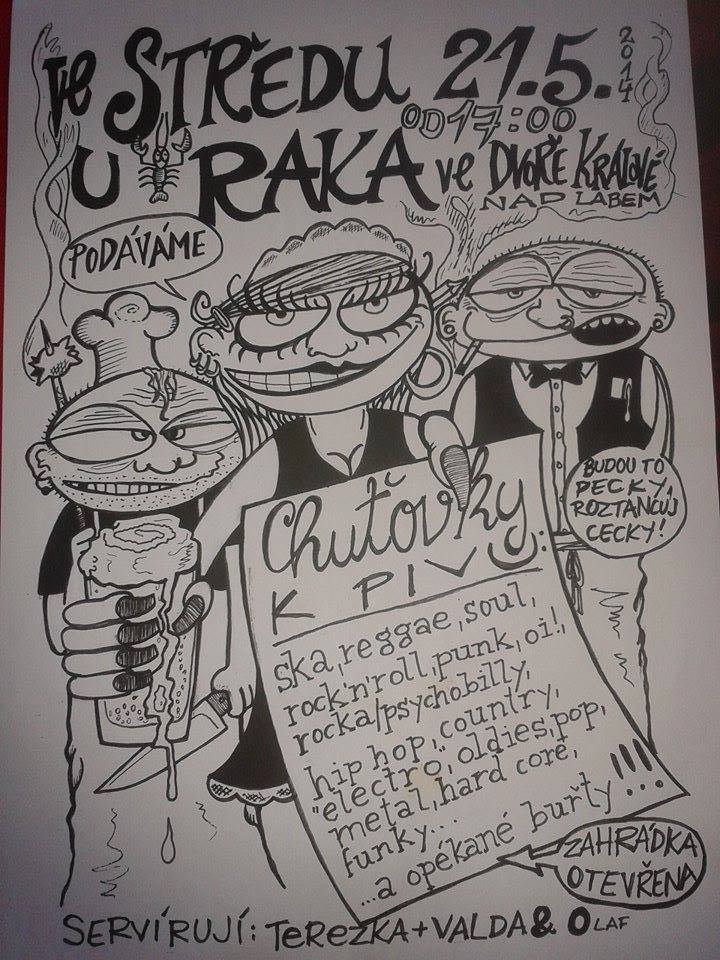 ve STŘEDU 21.5. 2014
OD 17:00
U RAKA ve DVOŘE KRÁLOVÉ
NAD LABEM
PODÁVÁME
BUDOU TO
PECKY,
ROZTANCUJ
CECKY!
Chuťovky
K PIVU:
ska, reggae, soul,
rock'n'roll, punk, oi!,
rocka/psychobilly,
hip hop, country,
"electro", oldies, pop,
metal, hard core,
funky...
...a opékané buřty!!!...
ZAHRÁDKA
OTEVŘENA
SERVÍRUJÍ: TEREZKA + VALDA & OLAF